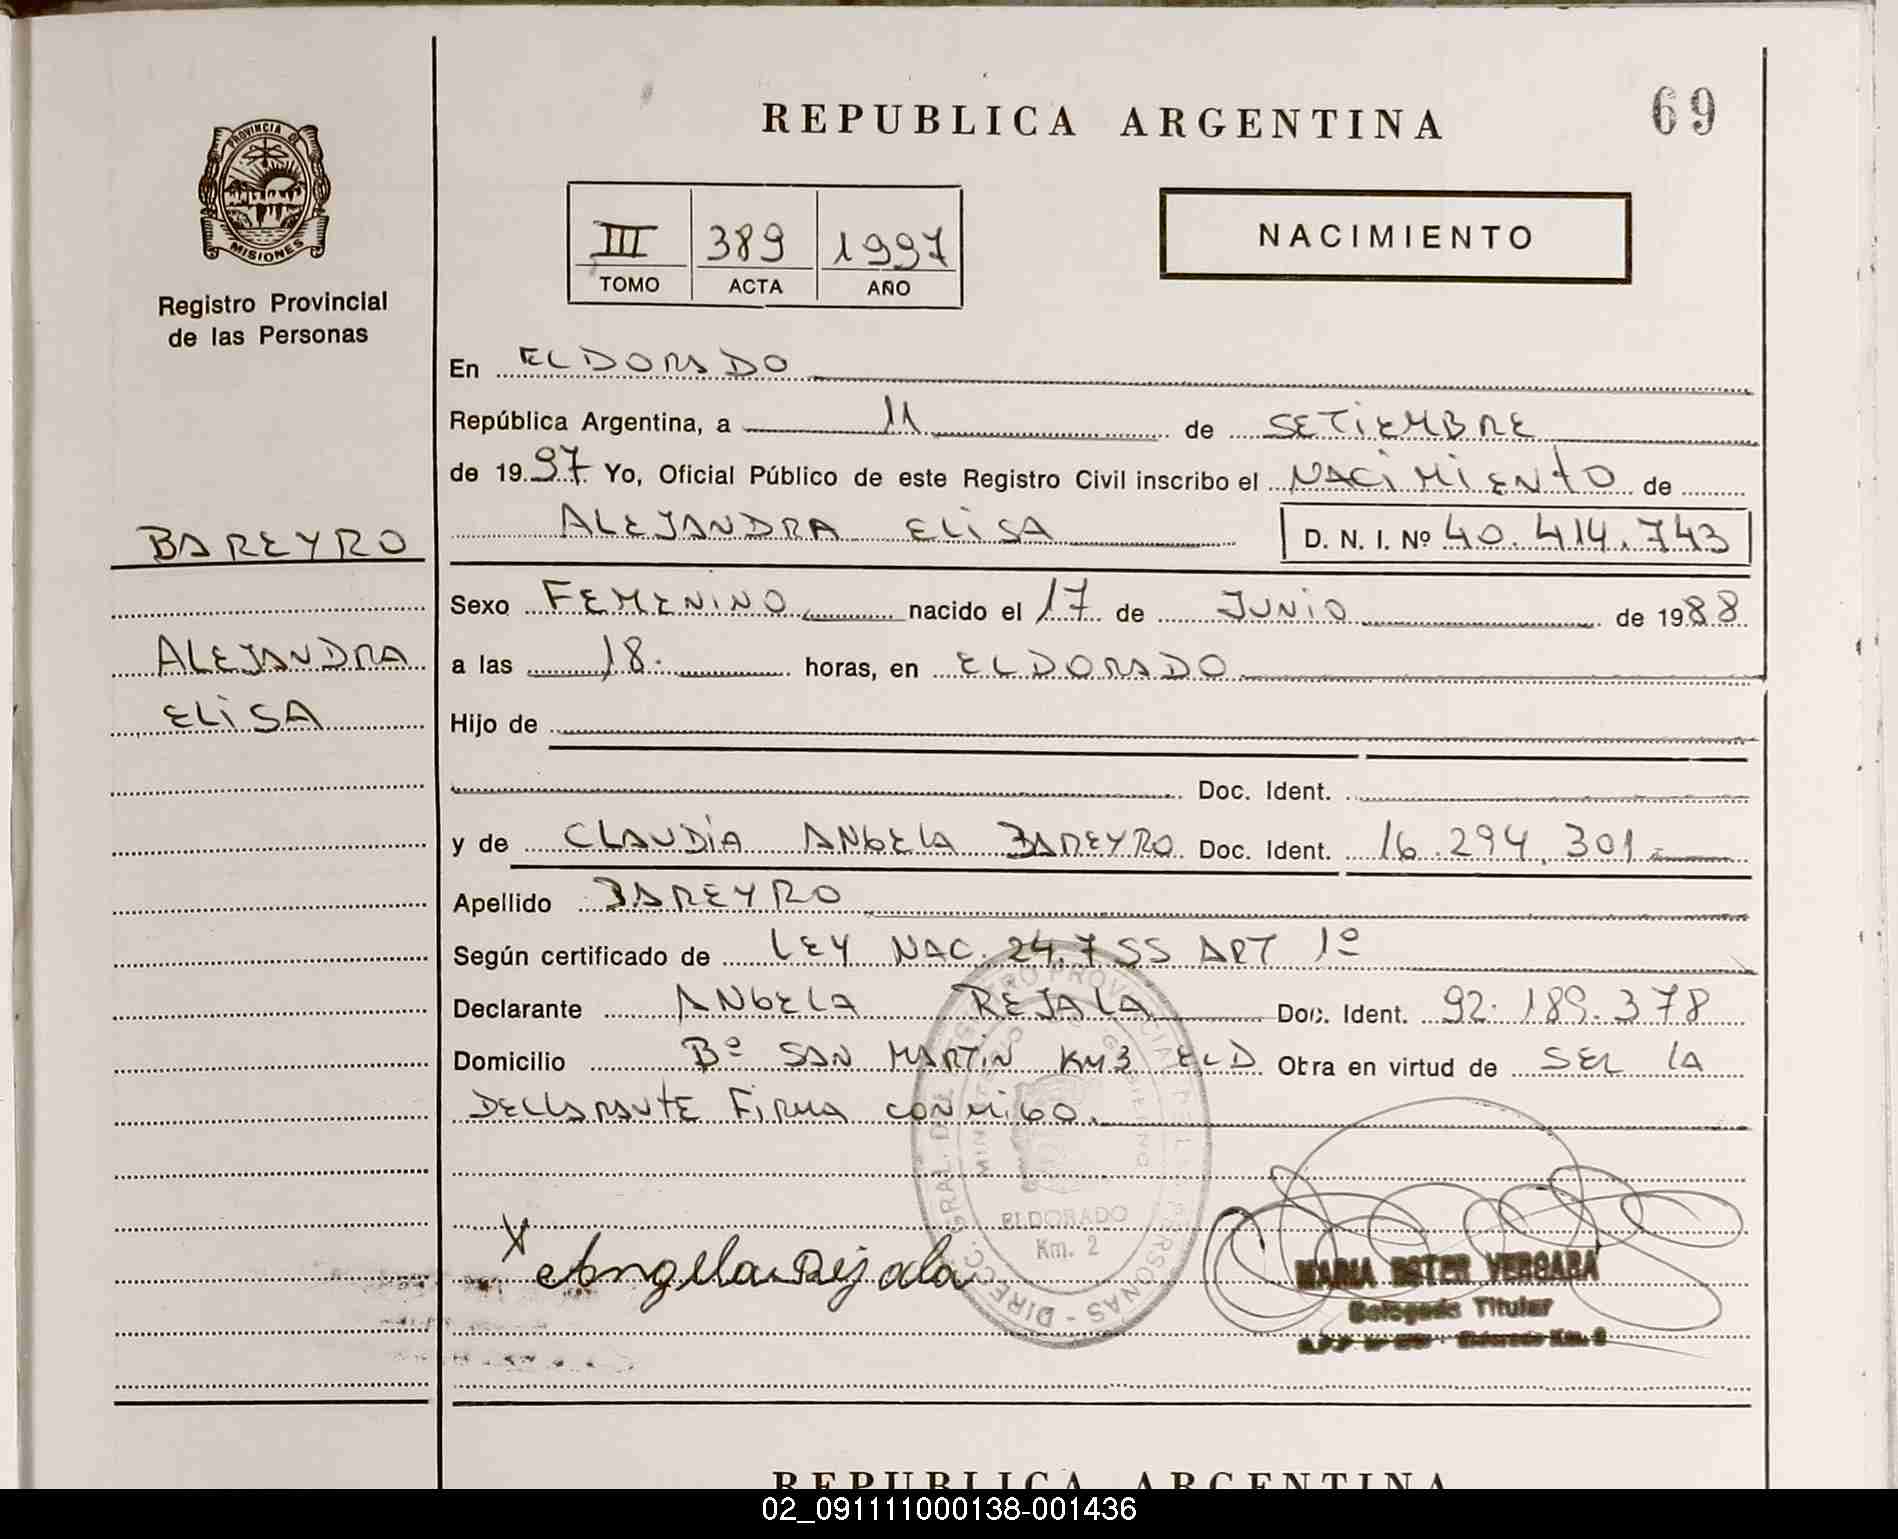 REPUBLICA ARGENTINA
69
PROVINCIA DE
MISIONES
Registro Provincial
de las Personas
III 389 1997
TOMO ACTA AÑO
NACIMIENTO
En ELDORADO
República Argentina, a 11 de SETIEMBRE
de 1997 Yo, Oficial Público de este Registro Civil inscribo el NACIMIENTO de
BAREYRO
ALEJANDRA ELISA D. N. I. Nº 40.414.743
Sexo FEMENINO nacido el 17 de JUNIO de 1988
ALEJANDRA
a las 18. horas, en ELDORADO
ELISA
Hijo de
Doc. Ident.
y de CLAUDIA ANGELA BAREYRO Doc. Ident. 16.294.301
Apellido BAREYRO
Según certificado de LEY NAC. 24.755 ART 1º
Declarante ANGELA REJALA Doc. Ident. 92.189.378
Domicilio Bº SAN MARTIN KM3 ELD Otra en virtud de SER LA
DECLARANTE FIRMA CONMIGO.
ELDORADO
Km. 2
X Angela Rejala
MARIA ESTER VERGARA
Delegada Titular
REPUBLICA ARGENTINA
02_091111000138-001436